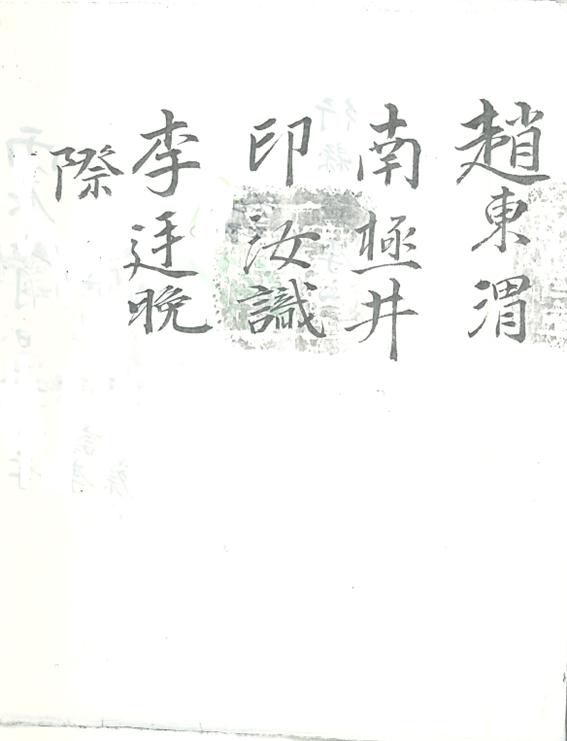 趙東渭
南極井
印汝識
李廷晩
際